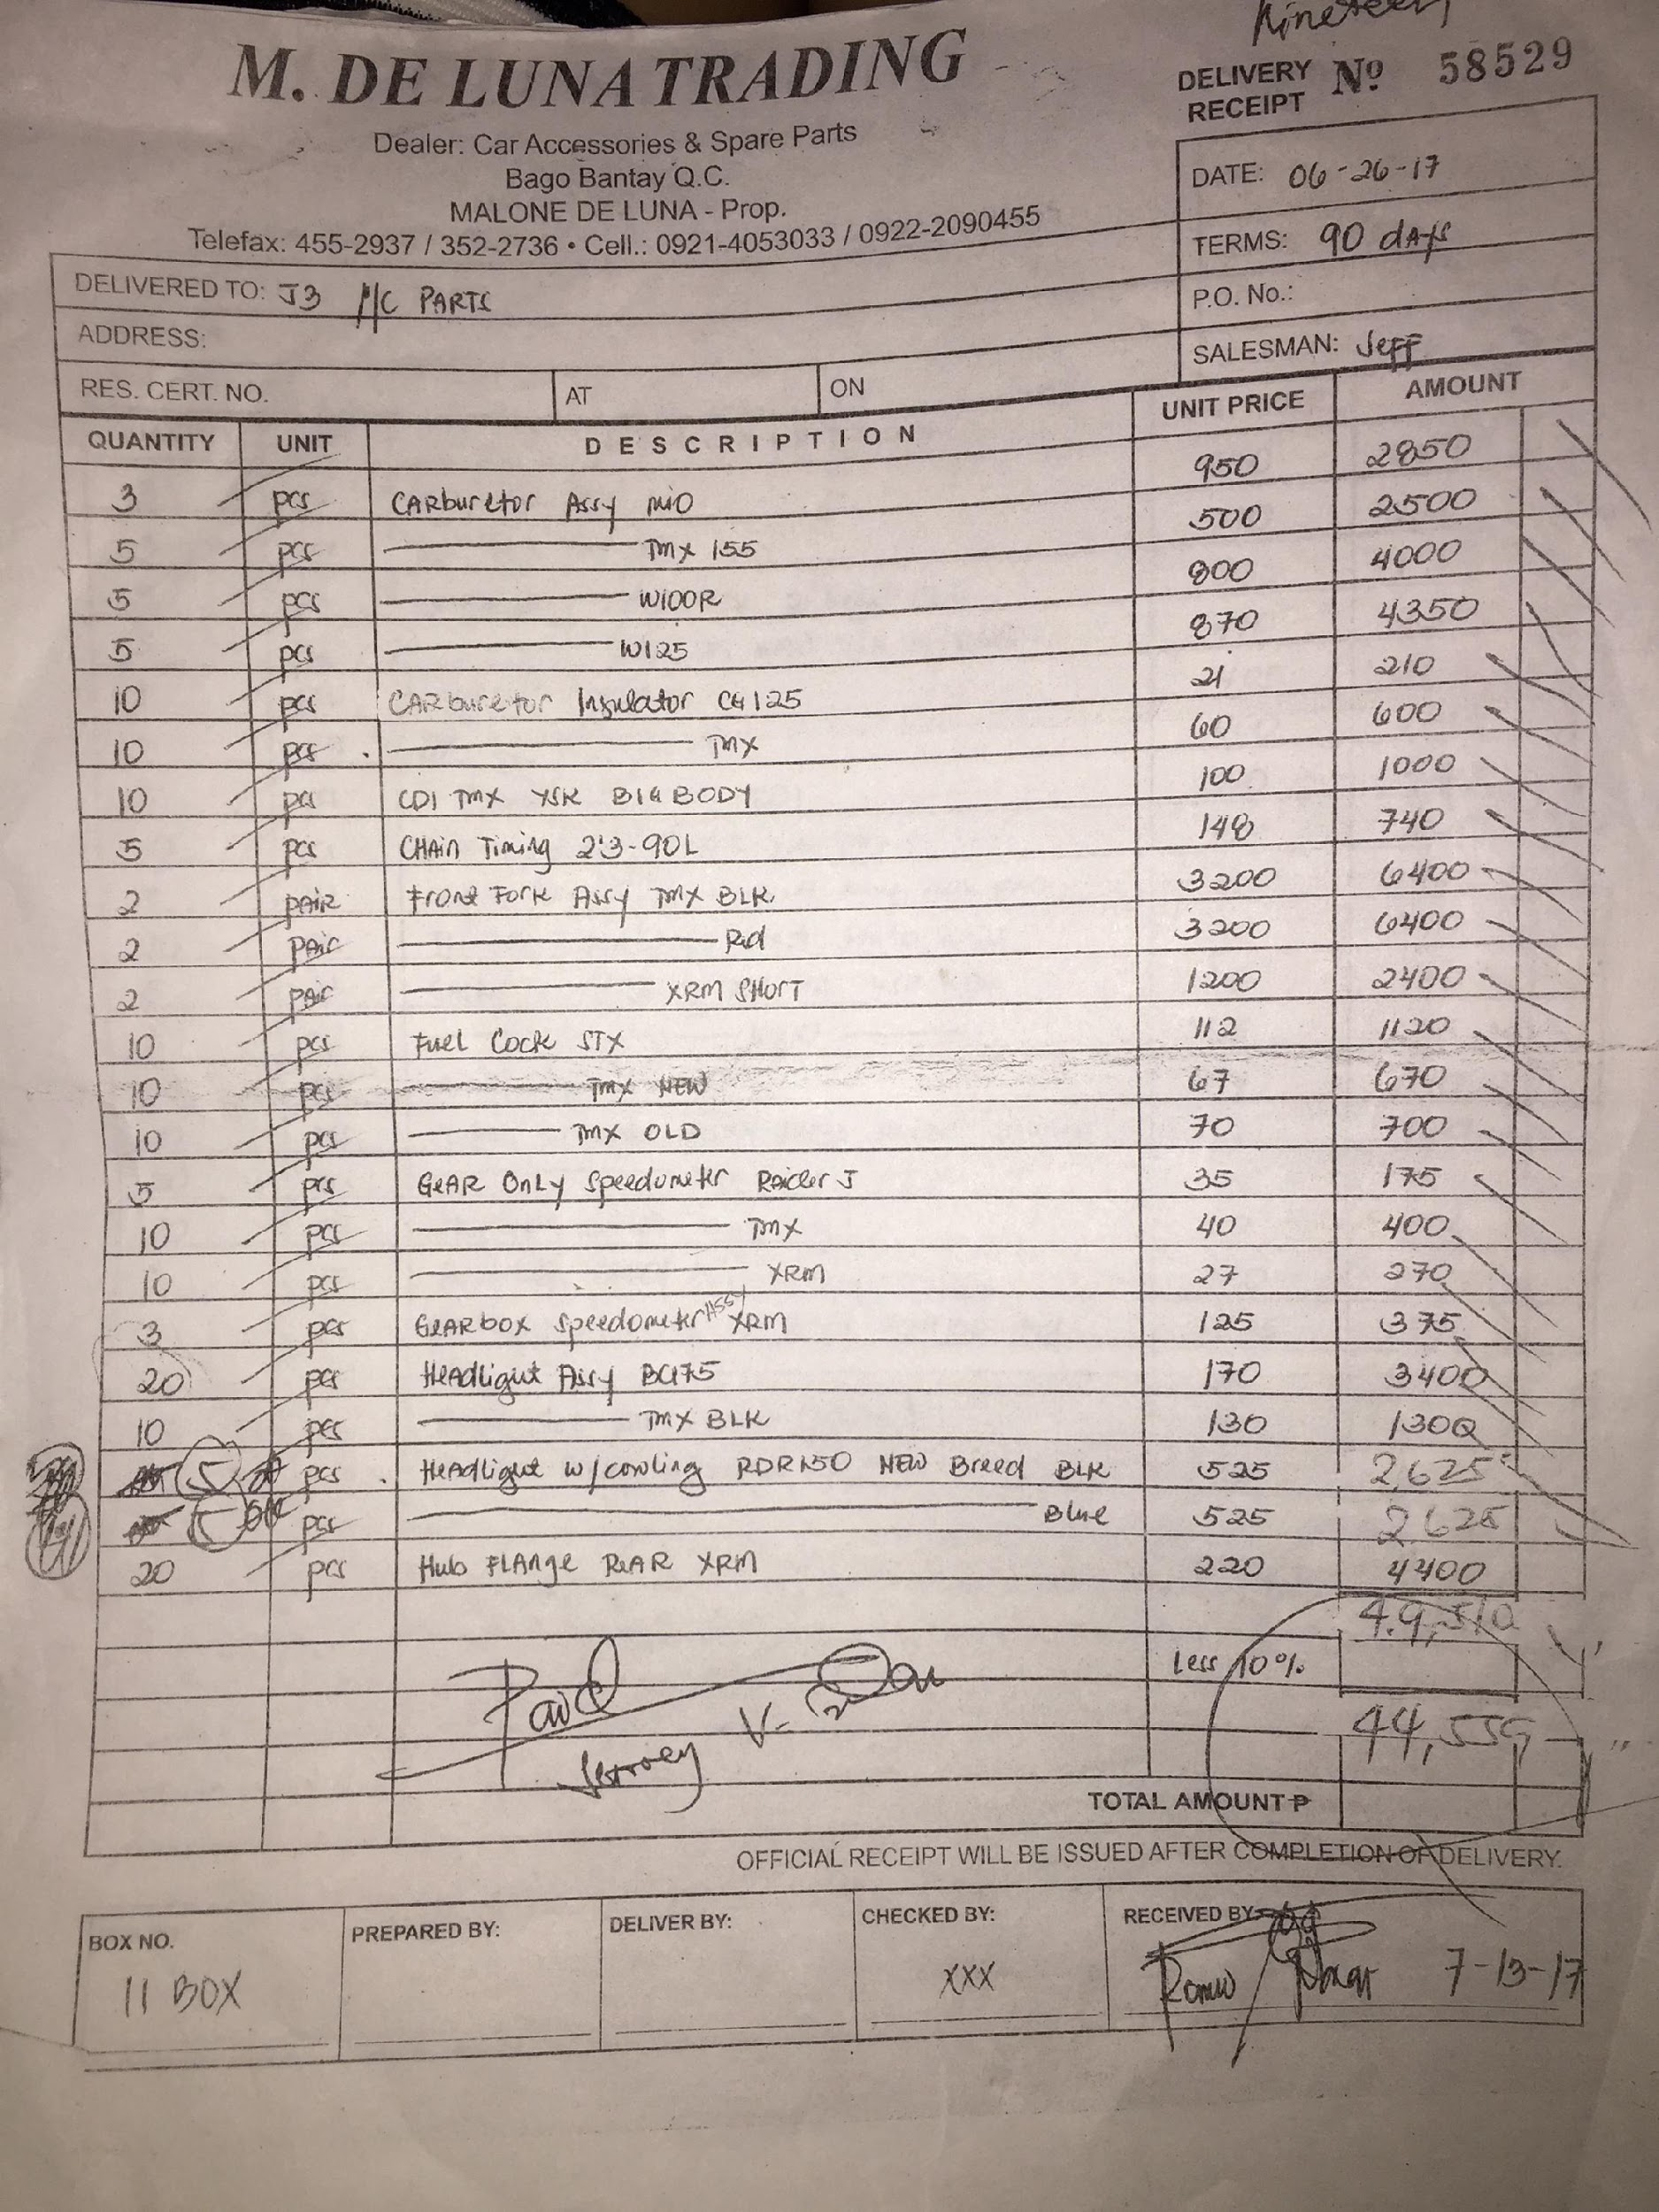 Nineteen
M. DE LUNA TRADING
DELIVERY RECEIPT Nº 58529
Dealer: Car Accessories & Spare Parts
Bago Bantay Q.C.
MALONE DE LUNA - Prop.
Telefax: 455-2937 / 352-2736 • Cell.: 0921-4053033 / 0922-2090455
DATE: 06-26-17
TERMS: 90 dAys
DELIVERED TO: J3 M/C PARTS
P.O. No.:
ADDRESS:
SALESMAN: Jeff
RES. CERT. NO. AT ON
QUANTITY UNIT DESCRIPTION UNIT PRICE AMOUNT
3 pcs CARburetor Assy MIO 950 2850
5 pcs TMX 155 500 2500
5 pcs W100R 800 4000
5 pcs W125 870 4350
10 pcs CARburetor Insulator CG125 21 210
10 pcs TMX 60 600
10 pcs CDI TMX YSK BIG BODY 100 1000
5 pcs CHAin Timing 2'3-90L 148 740
2 pAIR Front Fork Assy TMX BLK 3200 6400
2 pAir Red 3200 6400
2 pAir XRM SHORT 1200 2400
10 pcs Fuel Cock STX 112 1120
10 pcs TMX NEW 67 670
10 pcs TMX OLD 70 700
5 pcs GeAR OnLy Speedometer Raider J 35 175
10 pcs TMX 40 400
10 pcs XRM 27 270
3 pcs GeARbox Speedometer ASSY XRM 125 375
20 pcs HeAdlight Assy BC175 170 3400
10 pcs TMX BLK 130 1300
5 pcs HeAdlight w/cowling RDR150 NEW Breed BLK 525 2,625
5 pcs Blue 525 2625
20 pcs Hub FLAnge ReAR XRM 220 4400
49,510
Less 10%
44,559
Paid
TOTAL AMOUNT ₱
OFFICIAL RECEIPT WILL BE ISSUED AFTER COMPLETION OF DELIVERY.
BOX NO. PREPARED BY: DELIVER BY: CHECKED BY: RECEIVED BY
11 BOX XXX 7-13-17